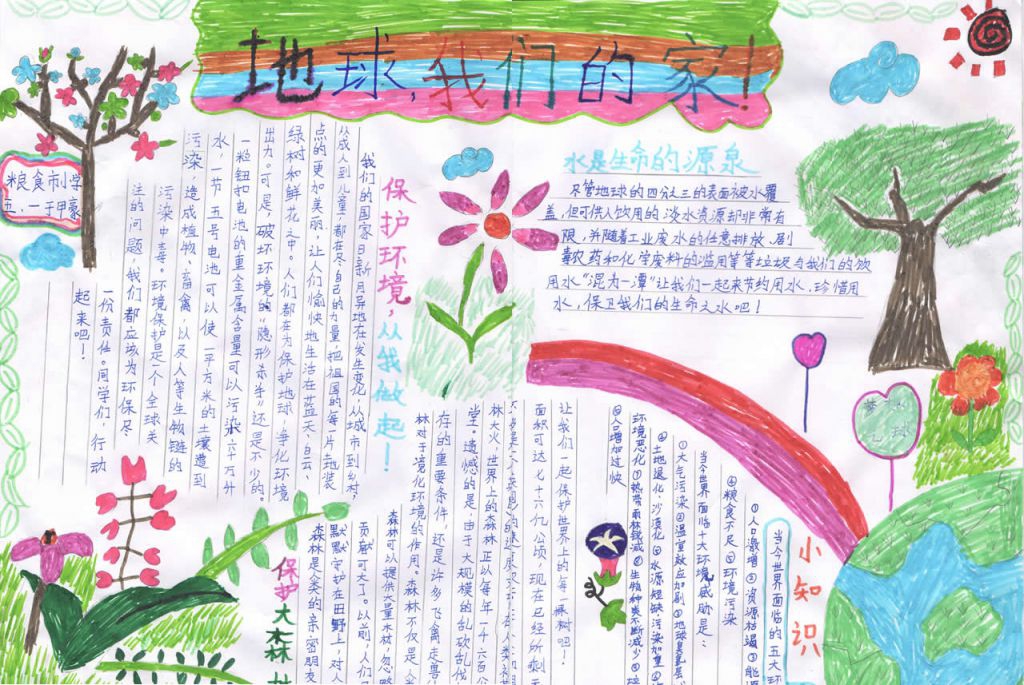 地球,我们的家!
粮食市小学
五.一 于甲豪
保护环境,从我做起!
我们的国家日新月异地在发生变化,从城市到乡村,
从成人到儿童,都在尽自己的力量,把祖国的每一片地装
点的更加美丽,让人们愉快地生活在蓝天、白云、
绿树和鲜花之中。人们都在为保护地球,净化环境
出力。可是,破坏环境的“隐形杀手”还是不少的。
一粒钮扣电池的重金属含量可以污染六十万升
水,一节五号电池可以使一平方米的土壤遭到
污染,造成植物、畜禽,以及人等生物链的
污染中毒。环境保护是一个全球关
注的问题,我们都应该为环保尽
一份责任。同学们,行动
起来吧!
水是生命的源泉
尽管地球的四分之三的表面被水覆
盖,但可供人饮用的淡水资源却非常有
限,并随着工业废水的任意排放、剧
毒农药和化学废料的滥用等等垃圾与我们的饮
用水“混为一潭”让我们一起来节约用水,珍惜用
水,保卫我们的生命之水吧!
小知识
当今世界面临的五大环
①人口激增②资源枯竭③能源
④粮食不足⑤环境污染
当今世界面临十大环境威胁是:
①大气污染②温室效应加剧③地球臭氧层
④土地退化、沙漠化⑤水源短缺、污染加重⑥
环境恶化⑦热带雨林锐减⑧生物种类不断减少⑨
⑩人口增加过快
保护大森林
森林是人类的亲密朋友
默默守护在田野上,对人
贡献可大了。以前,人们只
森林可以提供大量木材,忽略
林对于境化环境的作用。森林不仅是人
存的重要条件,还是许多飞禽走兽
堂。遗憾的是,由于大规模的乱砍乱伐
林大火,世界上的森林正以每年一千六百
面积可达七十六亿公顷,现在已经所剩无
让我们一起保护世界上的每一棵树吧!